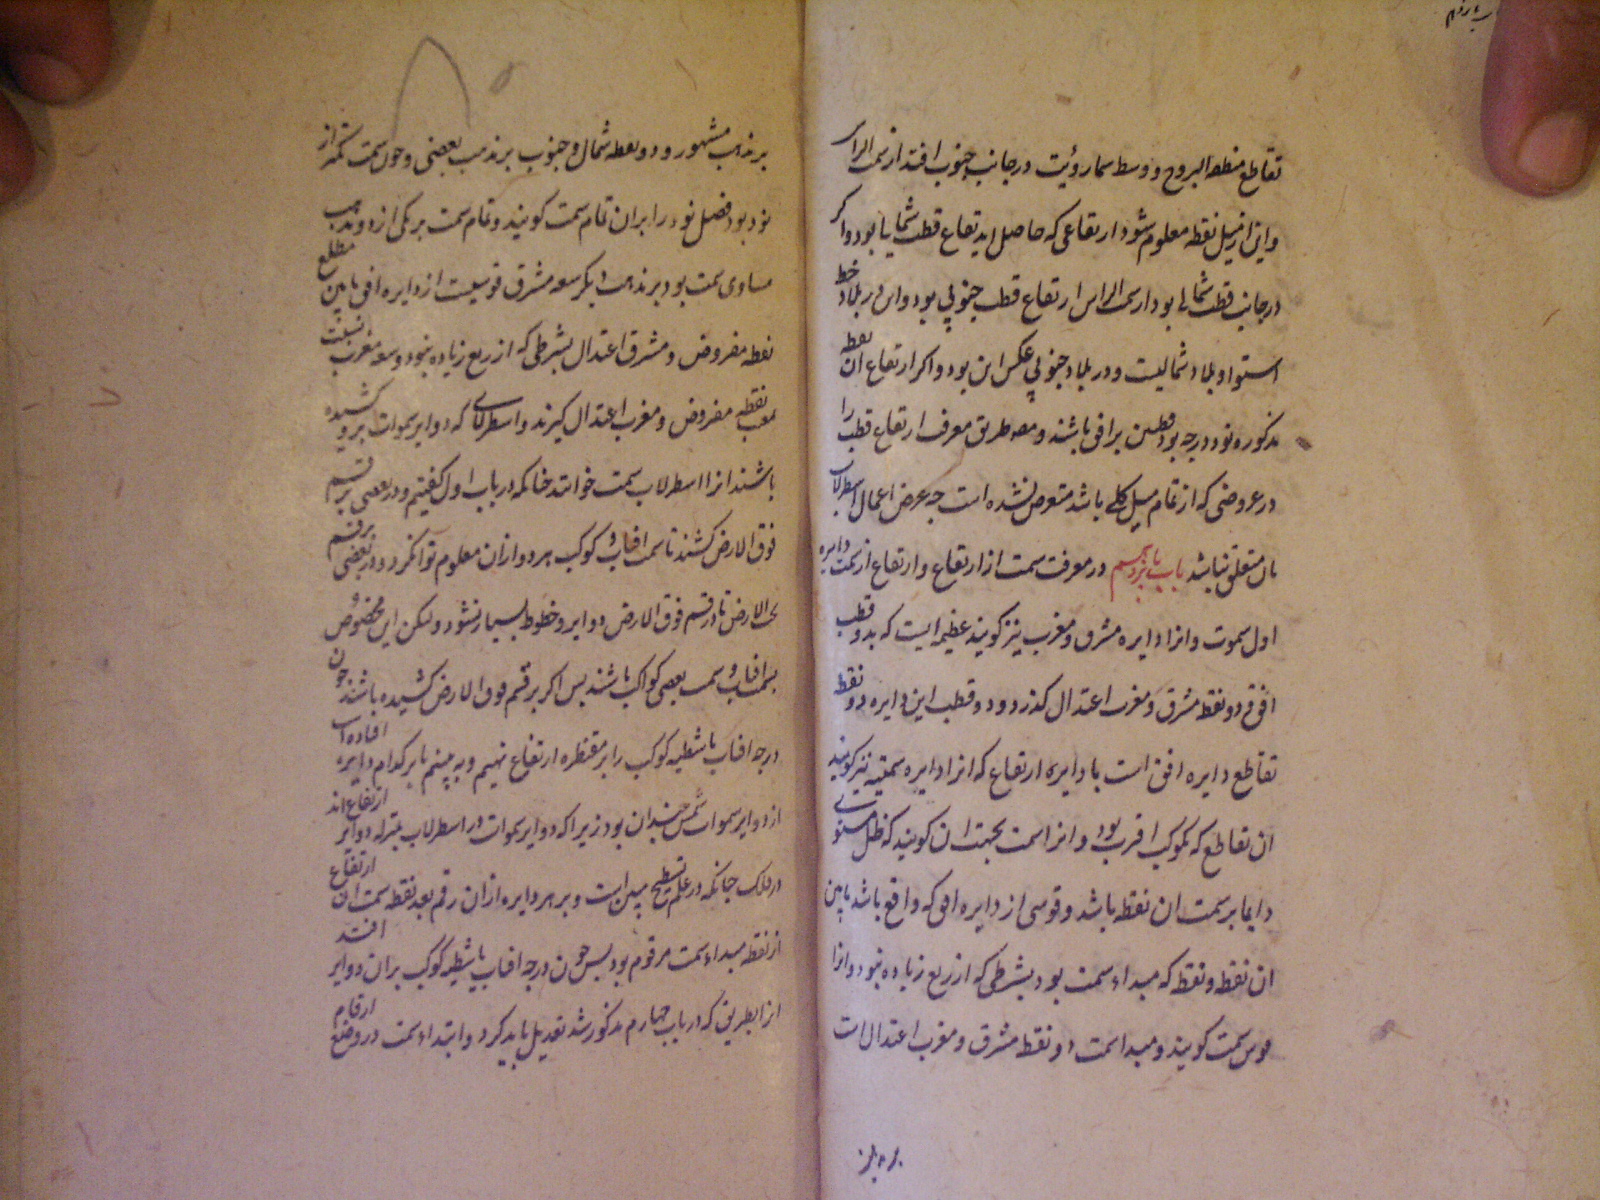 تقاطع منطقه البروج و وسط سما رؤیت در جانب جنوب افتد از سمت الراس
و این از میل نقطه معلوم شود ارتفاعی که حاصل اید ارتفاع قطب شمالی بود و اگر
در جانب قطب شمالی بود از سمت الراس ارتفاع قطب جنوبی بود و این در بلاد خط
استوا و بلاد شمالیست و در بلاد جنوبی عکس این بود و اگر ارتفاع ان نقطه
مذکوره نود درجه بود قطبین بر افق باشند و مصه طریق معرفت ارتفاع قطب را
در عروضی که از تمام میل کلی باشد متعرض نشده است چه عرض اعمال اسطرلاب
بان متعلق نباشد باب در معرفت سمت از ارتفاع و ارتفاع از سمت دایره
اول سموت و انرا دایره مشرق و مغرب نیز گویند عظیمه ایست که بدو قطب
افق و دو نقطه مشرق و مغرب اعتدال گذرد و دو قطب این دایره دو نقطه
تقاطع دایره افق است با دایره ارتفاع که انرا دایره سمتیه نیز گویند
ان تقاطع که بکوکب اقرب بود و انرا سمت بجهت ان گویند که ظل مستوی
دایما بر سمت ان نقطه باشد و قوسی از دایره افق که واقع باشد مابین
ان نقطه و نقطه که مبداء سمت بود بشرطی که از ربع زیاده نبود و انرا
قوس سمت گویند و مبدا سمت دو نقطه مشرق و مغرب اعتدال است
بر مذهب مشهور و دو نقطه شمال و جنوب بر مذهب بعضی و چون سمت کمتر از
نود بود فضل نود را بران تمام سمت گویند و تمام سمت بر یکی از دو مذهب
مساوی سمت بود بر مذهب دیگر سعه مشرق قوسیست از دایره افق مابین مطلع
نقطه مفروض و مشرق اعتدال بشرطی که از ربع زیاده نبود و سعه مغرب نسبت
بمغیب نقطه مفروض و مغرب اعتدال گیرند و اسطرلابی که دوایر سموات برو کشیده
باشند انرا اسطرلاب سمت خوانند چنانکه در باب اول گفتیم و در بعضی بر قسم
فوق الارض کشند تا سمت افتاب و کوکب هر دو ازان معلوم توان کرد و در بعضی بر قسم
تحت الارض تا در قسم فوق الارض دوایر و خطوط بسیار نشود و لکن این مخصوص
بسمت افتاب و سمت بعضی کواکب باشند پس اگر بر قسم فوق الارض کشیده باشند چون
درجه افتاب یا شظیه کوکب را بر مقنطره ارتفاع نهیم و به بینیم تا بر کدام دایره افتاده است
از دوایر سموات سمت چندان بود زیرا که دوایر سموات در اسطرلاب بمنزله دوایر ارتفاع اند
در فلک چنانکه در علم تسطیح مبین است و بر هر دایره ازان رقم بعد نقطه سمت ان ارتفاع
از نقطه مبداء سمت مرقوم بود پس چون درجه افتاب یا شظیه کوکب بران دوایر افتد
از ان طریق که در باب چهارم مذکور شد تعدیل باید کرد و ابتداء سمت در وضع ارقام